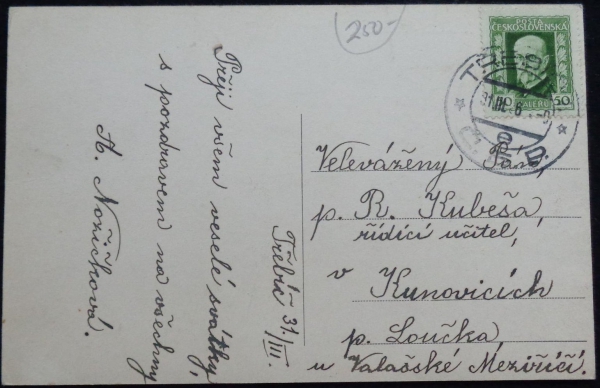 250-
POŠTA
ČESKOSLOVENSKÁ
50 HALÉŘŮ 50
Přeji všem veselé svátky,
s pozdravem na všechny
A. Nožičková.
Třebíč 31/III.
Velevážený Pán,
p. R. Kubeša,
řídící učitel,
v
Kunovicích
p. Loučka,
u Valašské Meziříčí.